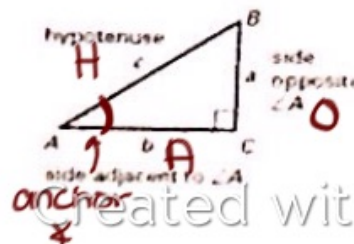 B
hypotenuse
H
c
side
a
opposite
∠A
O
A
b
C
A
side adjacent to ∠A
anchor
∡
Created wit